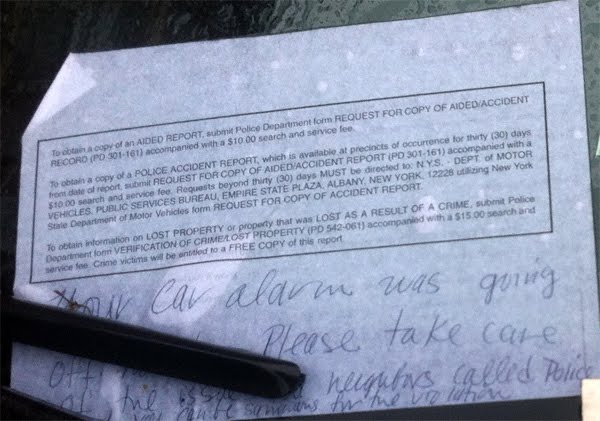 To obtain a copy of an AIDED REPORT, submit Police Department form REQUEST FOR COPY OF AIDED/ACCIDENT
RECORD (PD 301-161) accompanied with a $10.00 search and service fee.
To obtain a copy of a POLICE ACCIDENT REPORT, which is available at precincts of occurrence for thirty (30) days
from date of report, submit REQUEST FOR COPY OF AIDED/ACCIDENT REPORT (PD 301-161) accompanied with a
$10.00 search and service fee. Requests beyond thirty (30) days MUST be directed to: N.Y.S. - DEPT. of MOTOR
VEHICLES, PUBLIC SERVICES BUREAU, EMPIRE STATE PLAZA, ALBANY, NEW YORK, 12228 utilizing New York
State Department of Motor Vehicles form REQUEST FOR COPY OF ACCIDENT REPORT.
To obtain information on LOST PROPERTY or property that was LOST AS A RESULT OF A CRIME, submit Police
Department form VERIFICATION OF CRIME/LOST PROPERTY (PD 542-061) accompanied with a $15.00 search and
service fee. Crime victims will be entitled to a FREE COPY of this report.
Your car alarm was going
off Please take care
of the issue neighbors called Police
you can be summons for the violation